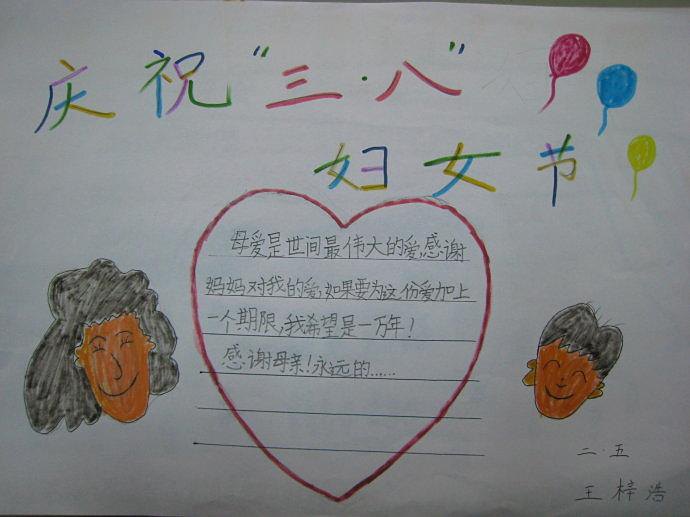 庆祝“三·八”
妇女节
母爱是世间最伟大的爱,感谢
妈妈对我的爱,如果要为这份爱加上
一个期限,我希望是一万年!
感谢母亲!永远的……
二·五
王梓浩